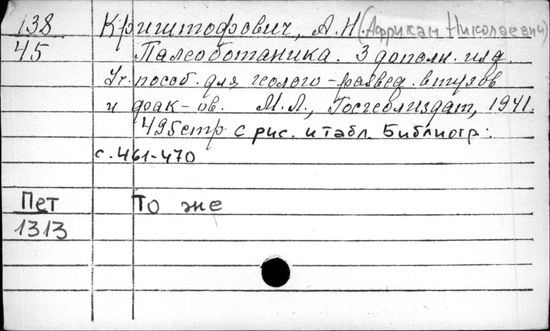 138 Криштофович, А.Н. (Африкан Николаевич)
45 Палеоботаника. 3 дополн. изд
Уч. пособ. для геолого-развед. втузов
и фак-ов. М.Л., Госгеолиздат, 1941.
495 стр с рис. и табл. Библиогр:
с. 461-470
Пет То же
1313